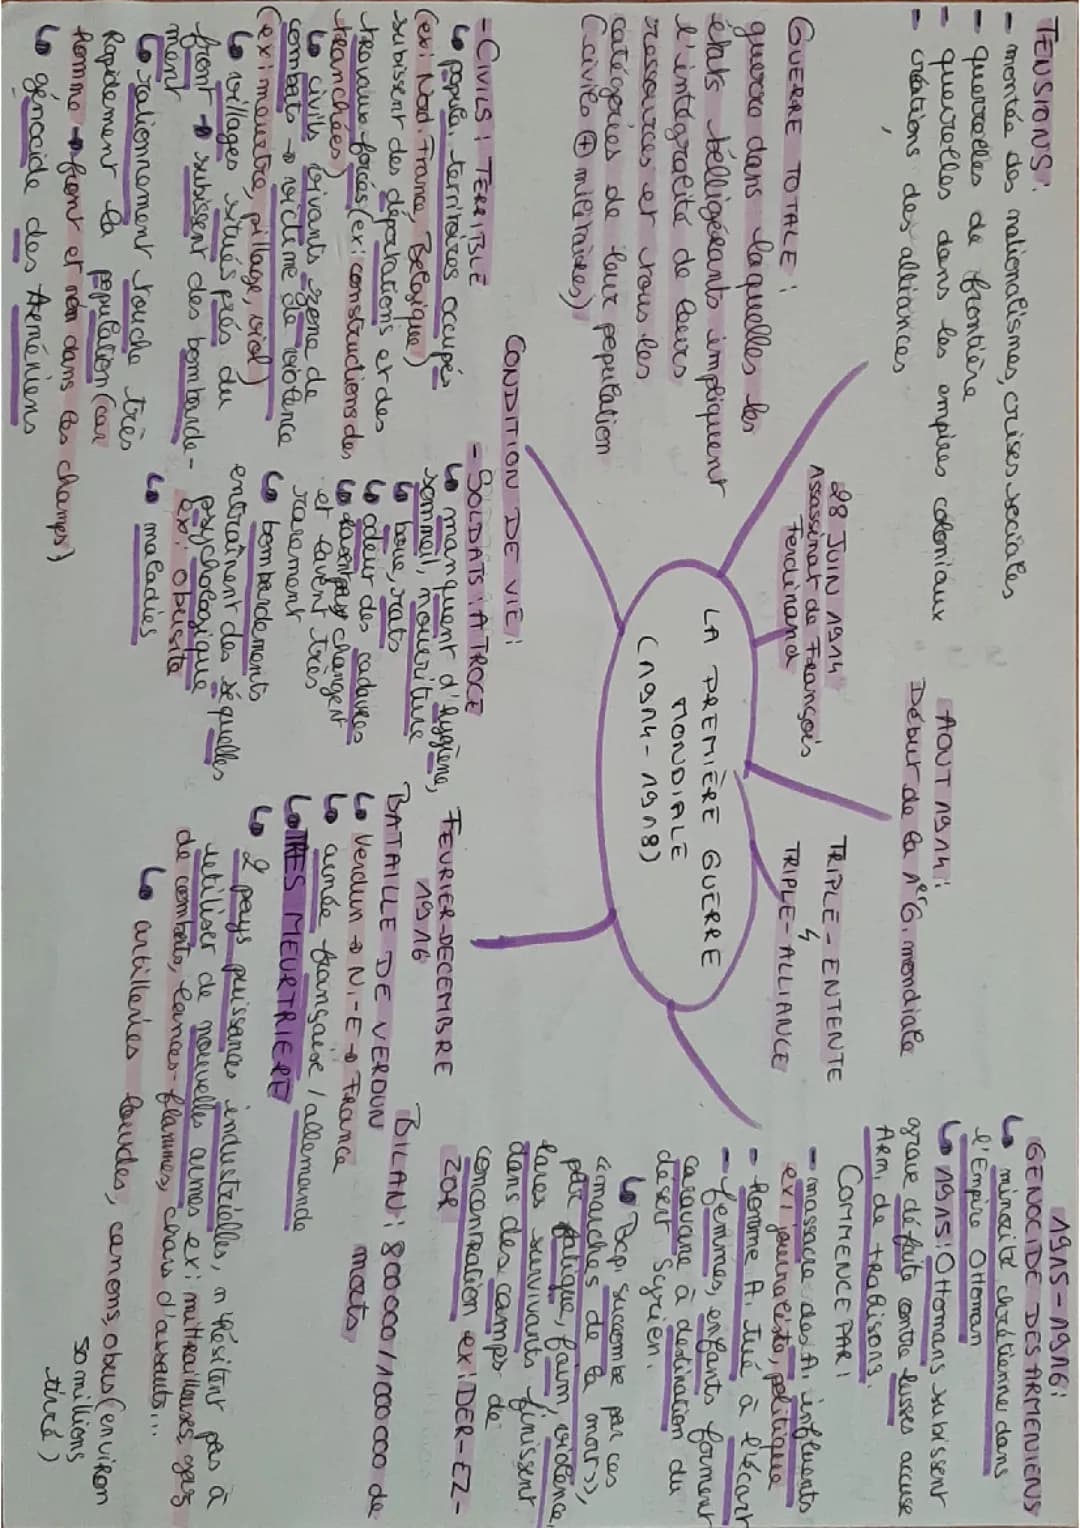 TENSIONS:
- montée des nationalismes, crises sociales
- querelles de frontière
- querelles dans les empires coloniaux
- créations des alliances
GUERRE TOTALE:
guerre dans laquelles les
états belligérants impliquent
l'intégralité de leurs
ressources et tous les
catégories de leur population
(civiles + militaires)
28 JUIN 1914
Assassinat de François
Ferdinand
AOUT 1914:
Début de la 1ère G. mondiale
TRIPLE-ENTENTE
TRIPLE-ALLIANCE
LA PREMIÈRE GUERRE
MONDIALE
(1914-1918)
1915-1916:
GENOCIDE DES ARMENIENS
↳ minorité chrétienne dans
l'Empire Ottoman
↳ 1915: Ottomans subissent
grave défaite contre russes accuse
Arm. de trahisons.
COMMENCE PAR:
- massacre des A. influents
ex: journaliste, politique
- homme A. tué à l'écart
- femmes, enfants forment
caravane à destination du
désert Syrien.
↳ Bcp. succombe par ces
« marches de la mort »,
par fatigue, faim, violence,
les survivants finissent
dans des camps de
concentration ex: DER-EZ-
ZOR
CONDITION DE VIE:
- CIVILS: TERRIBLE
↳ popula. territoires occupés
(ex: Nord. France, Belgique)
subissent des déportations et des
travaux forcées (ex: constructions des
tranchées)
↳ civils vivants zone de
combats → victime de violence
(ex: meurtre, pillage, viol)
↳ villages situés près du
front → subissent des bombarde-
ment
↳ rationnement touche très
Rapidement la population (car
Homme → front et non dans les champs)
↳ génocide des Arméniens
- SOLDATS: ATROCE
↳ manquent d'hygiène,
sommeil, nourriture
↳ boue, rats
↳ odeur des cadavres
changent
et lavent très
rarement
↳ bombardements
entraînent des séquelles
psychologique
ex: obusite
↳ maladies
FEVRIER-DECEMBRE
1916
BATAILLE DE VERDUN
↳ Verdun → N-E → France
↳ armée française / allemande
↳ TRES MEURTRIERE
↳ 2 pays puissances industrielles, n'hésitent pas à
utiliser de nouvelles armes ex: mitrailleuses, gaz
de combats, lances-flammes, chars d'assauts...
↳ artilleries lourdes, canons, obus (environ
50 millions
tiré)
BILAN: 800 000 / 1 000 000 de
morts